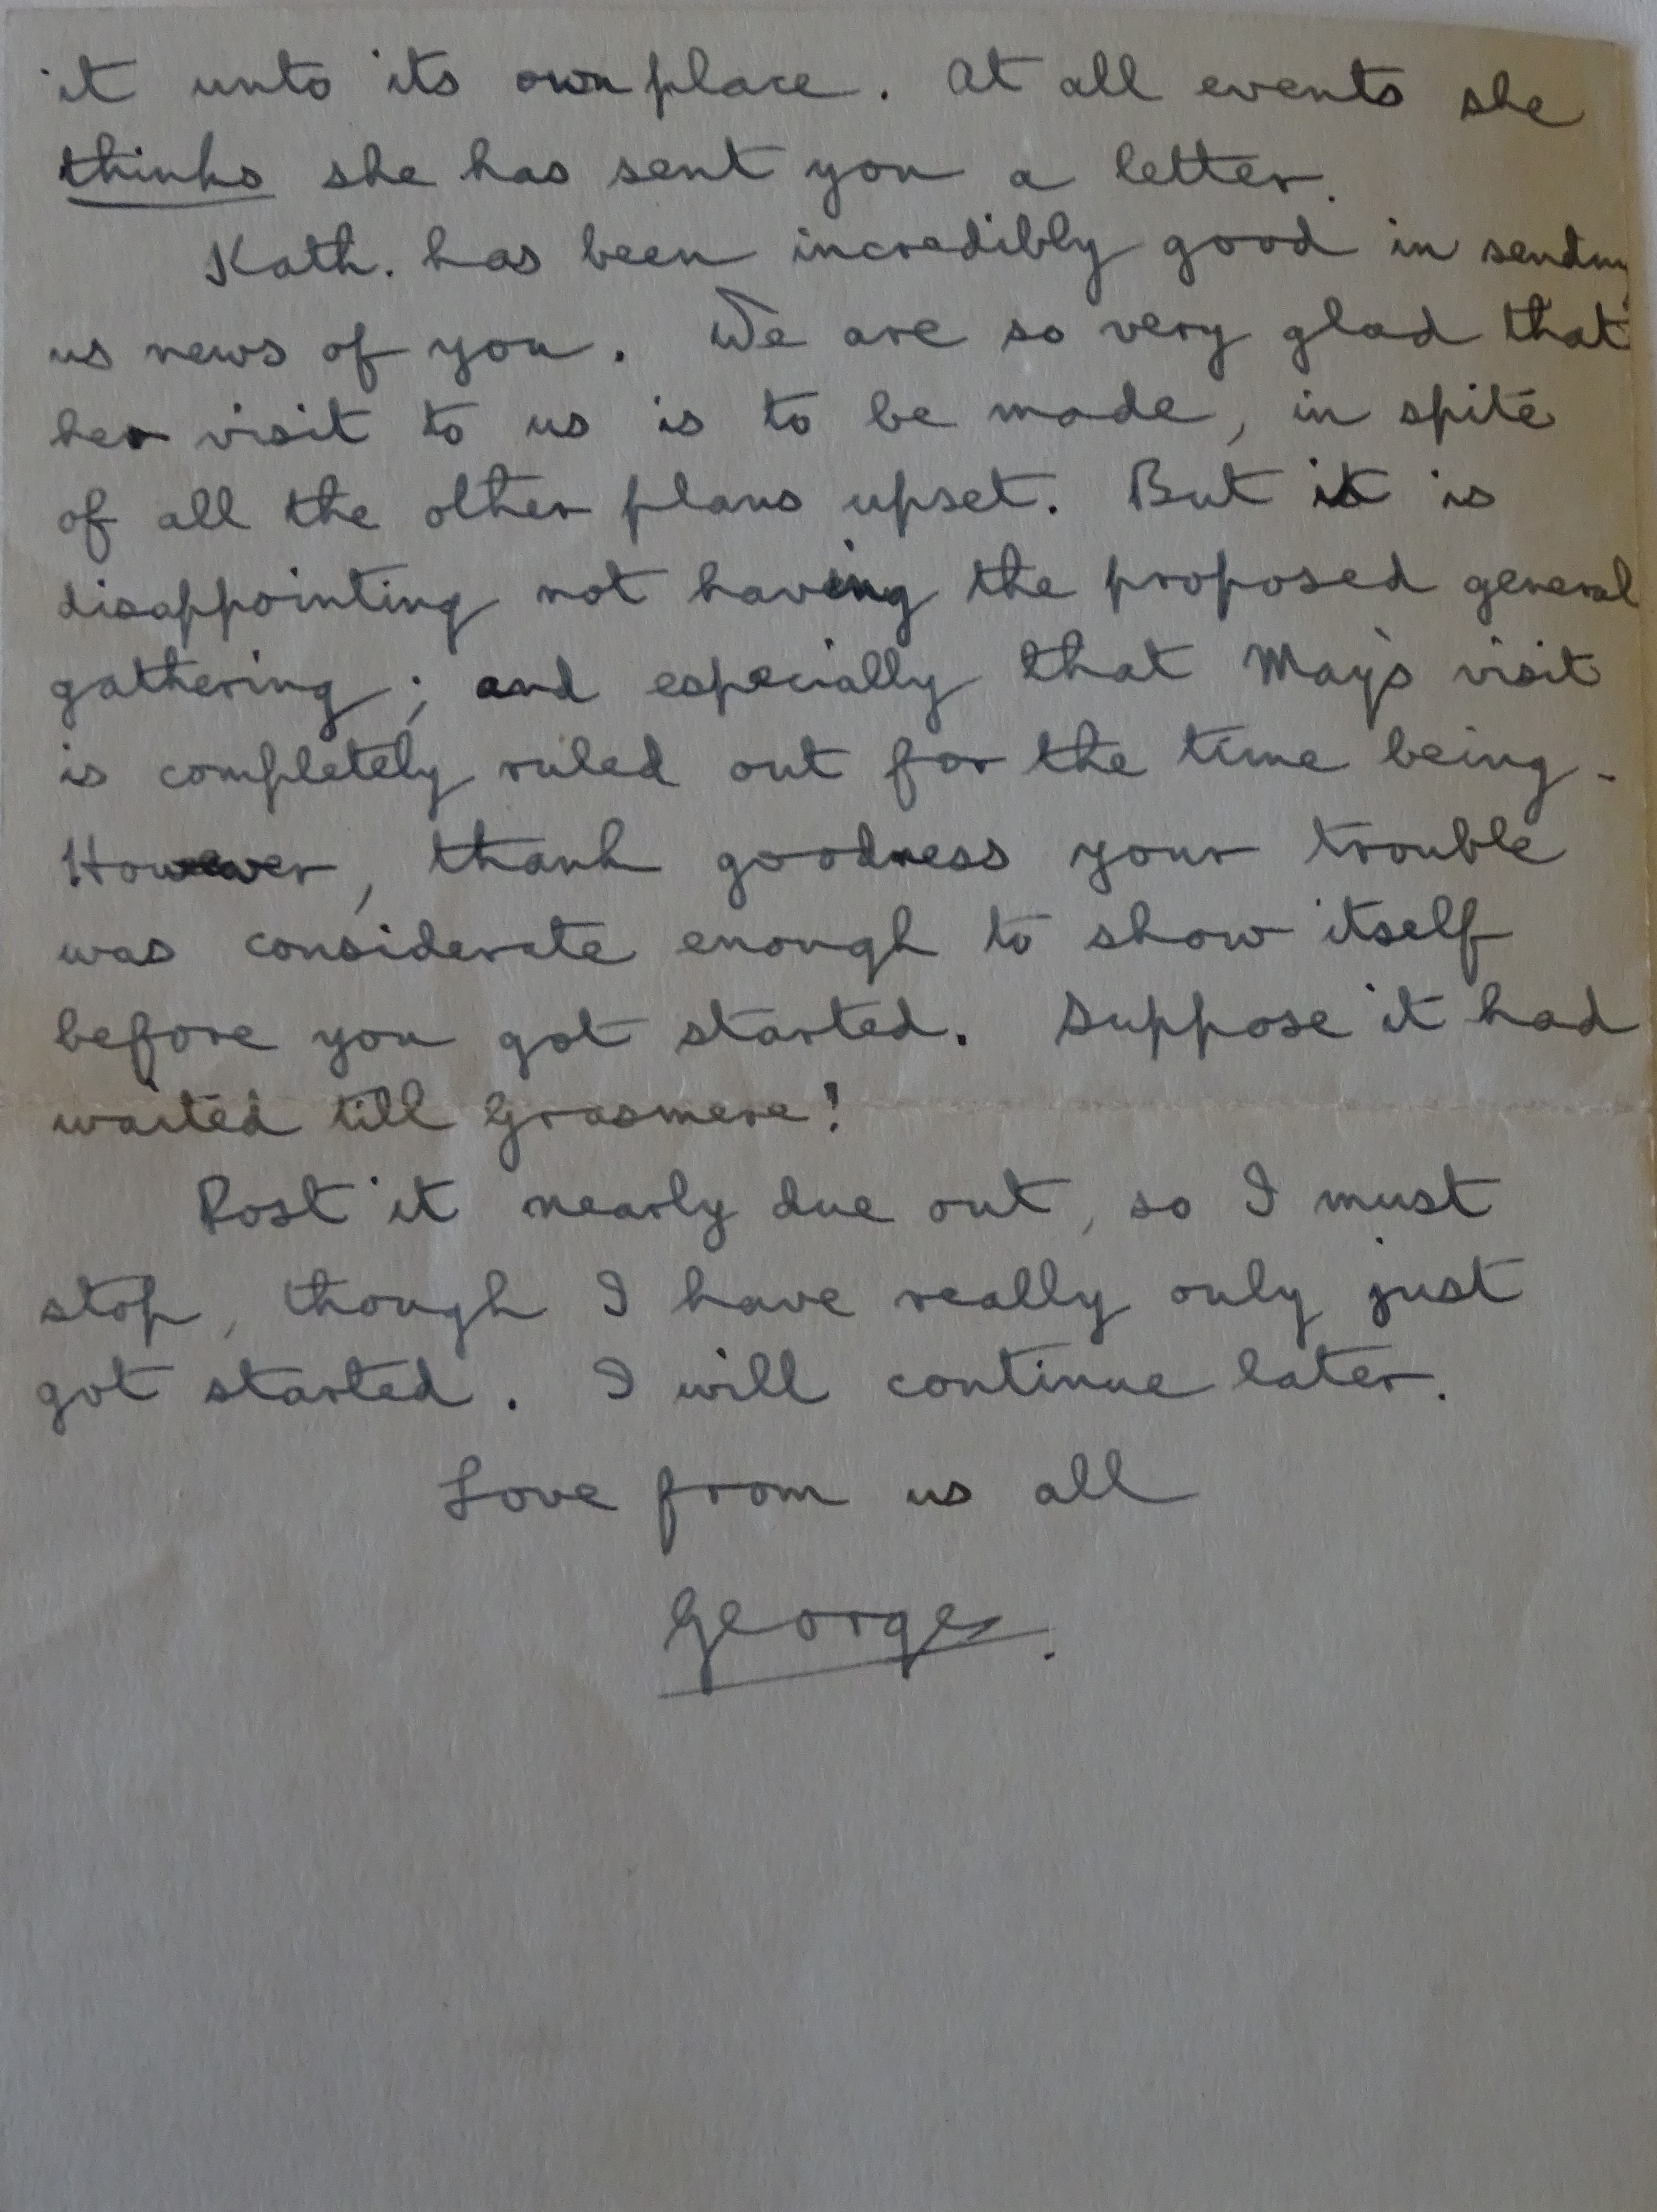 it unto its own place. At all events she
thinks she has sent you a letter.
Kath. has been incredibly good in sending
us news of you. We are so very glad that
her visit to us is to be made, in spite
of all the other plans upset. But it is
disappointing not having the proposed general
gathering; and especially that May's visit
is completely ruled out for the time being.
However, thank goodness your trouble
was considerate enough to show itself
before you got started. Suppose it had
waited till Grasmere!
Post it nearly due out, so I must
stop, though I have really only just
got started. I will continue later.
Love from us all
George.